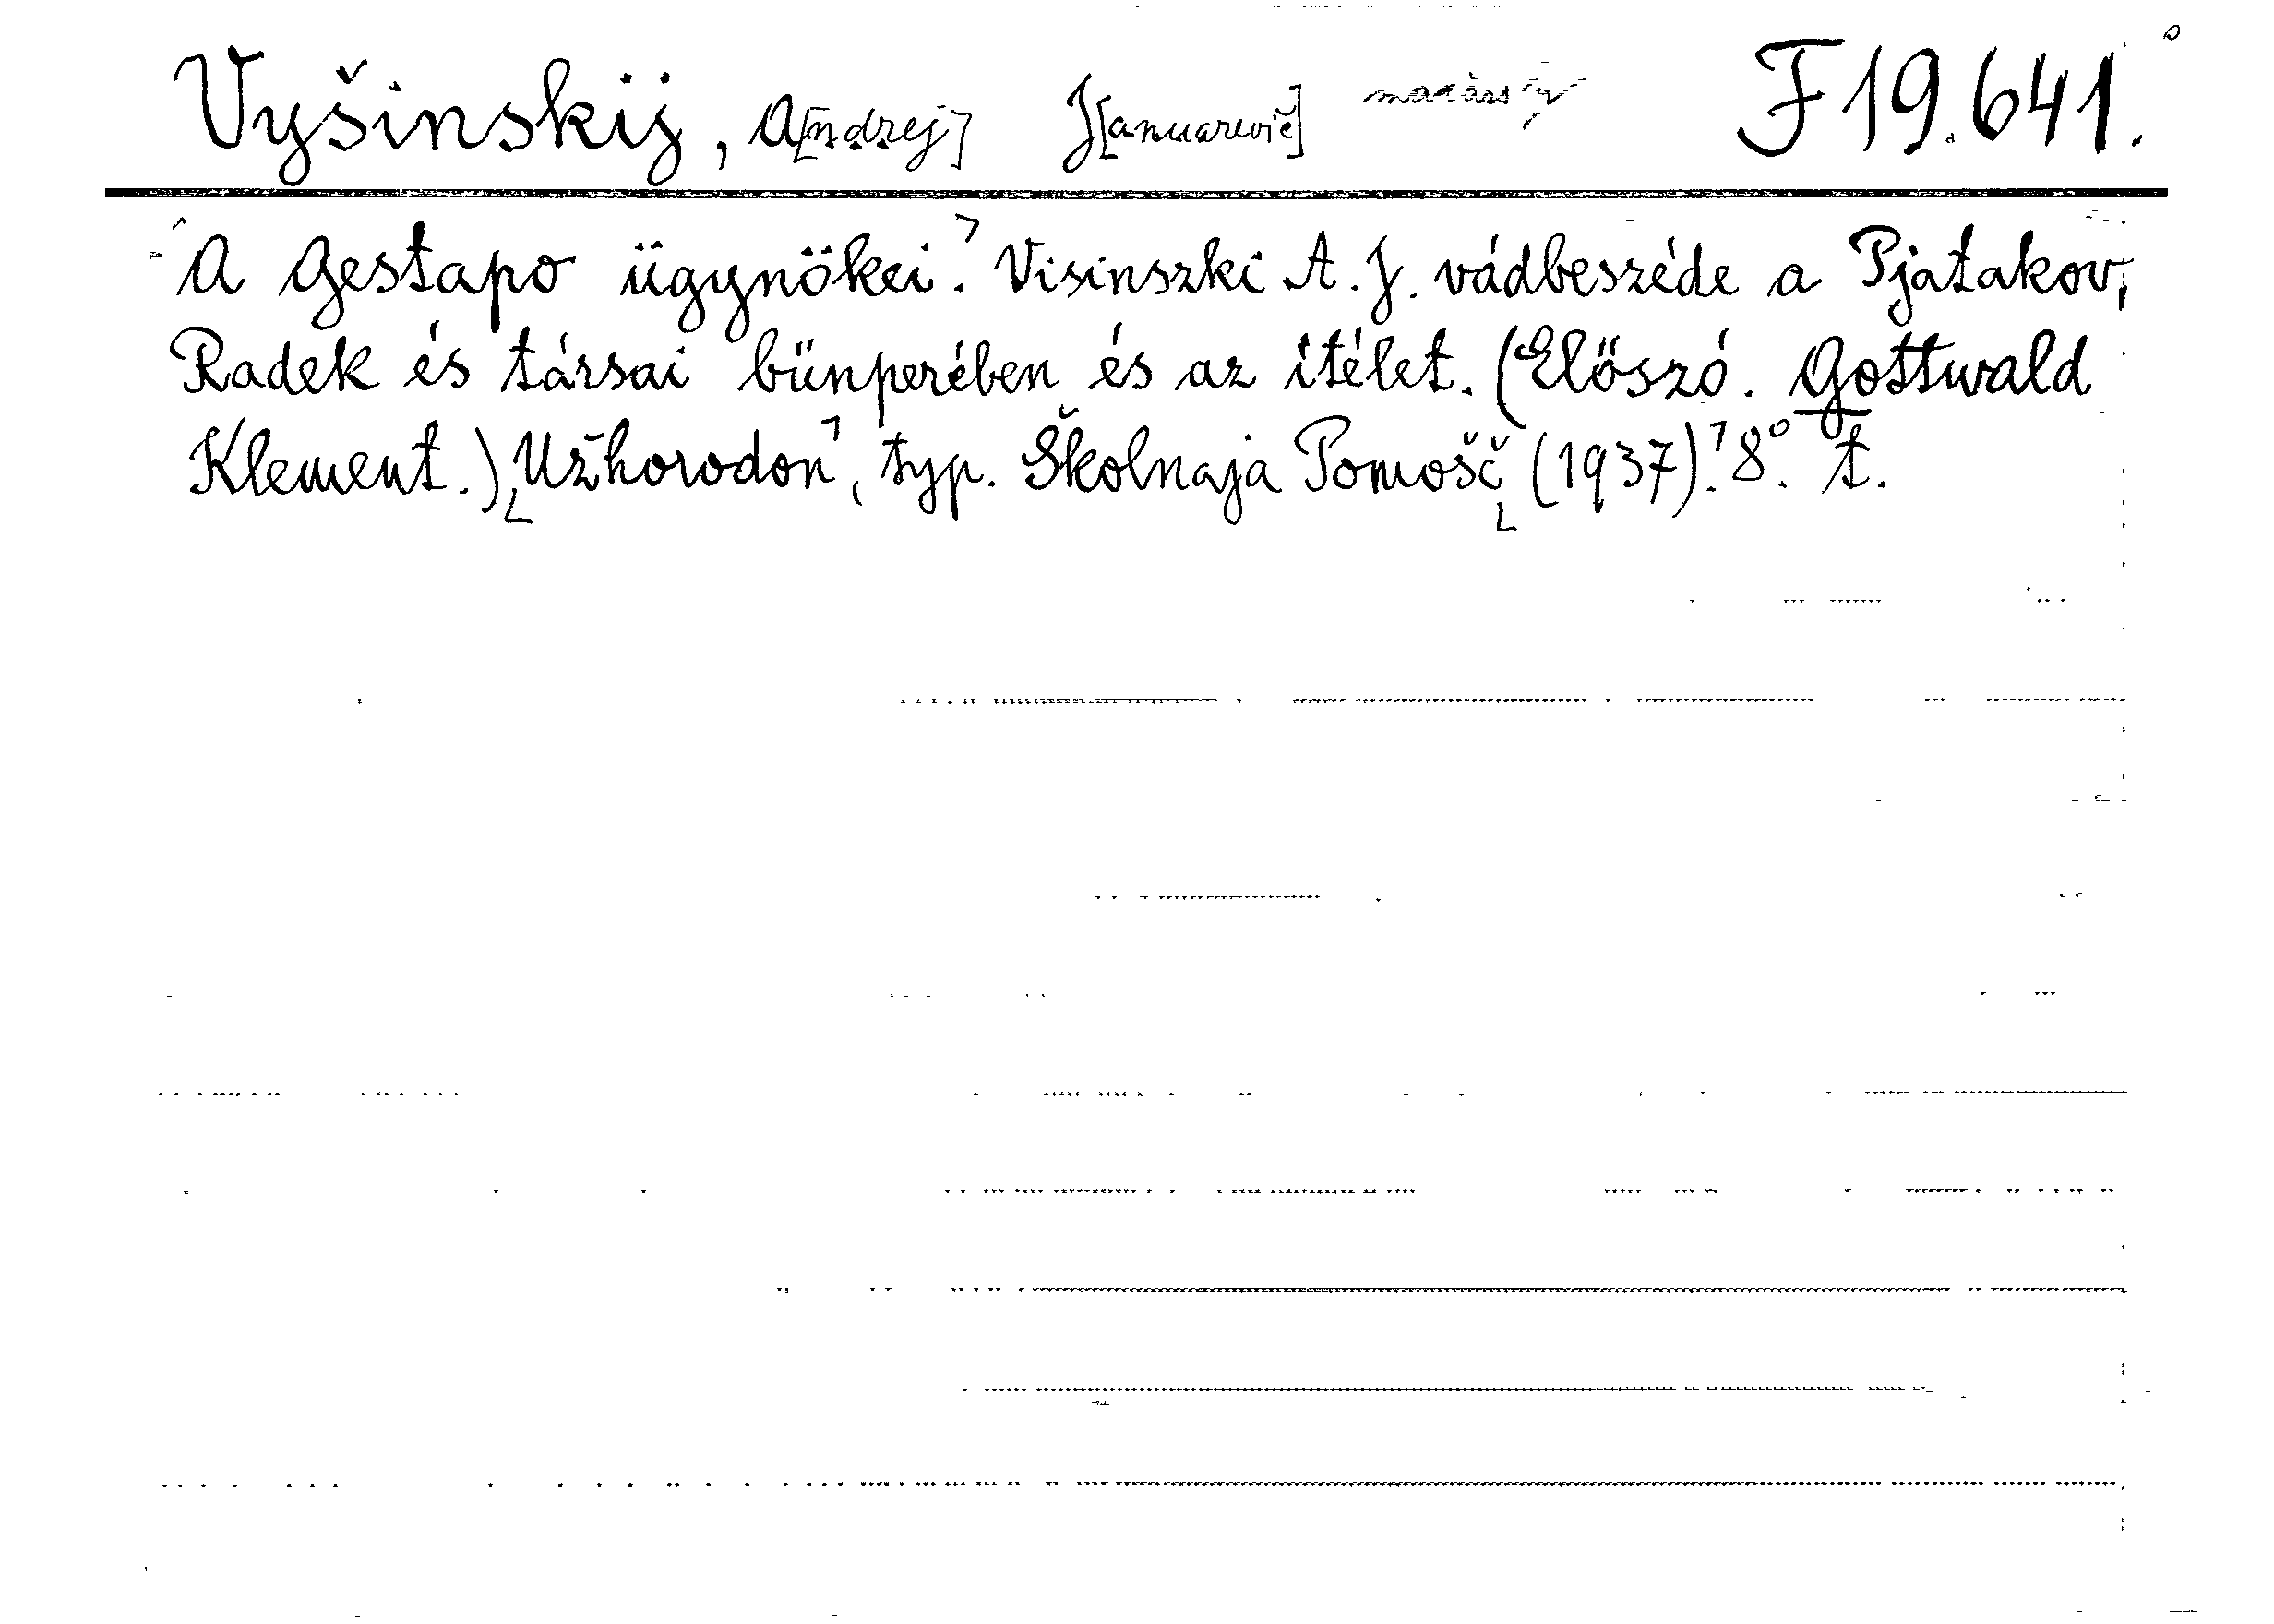 Vyšinskij, A[ndrej] J[anuarevič] F 19.641.
A Gestapo ügynökei. Visinszki A. J. vádbeszéde a Pjatakov,
Radek és társai bűnperében és az ítélet. (Előszó. Gottwald
Klement.) Užhorodon, typ. Školnaja Pomošč (1937). 8° t.